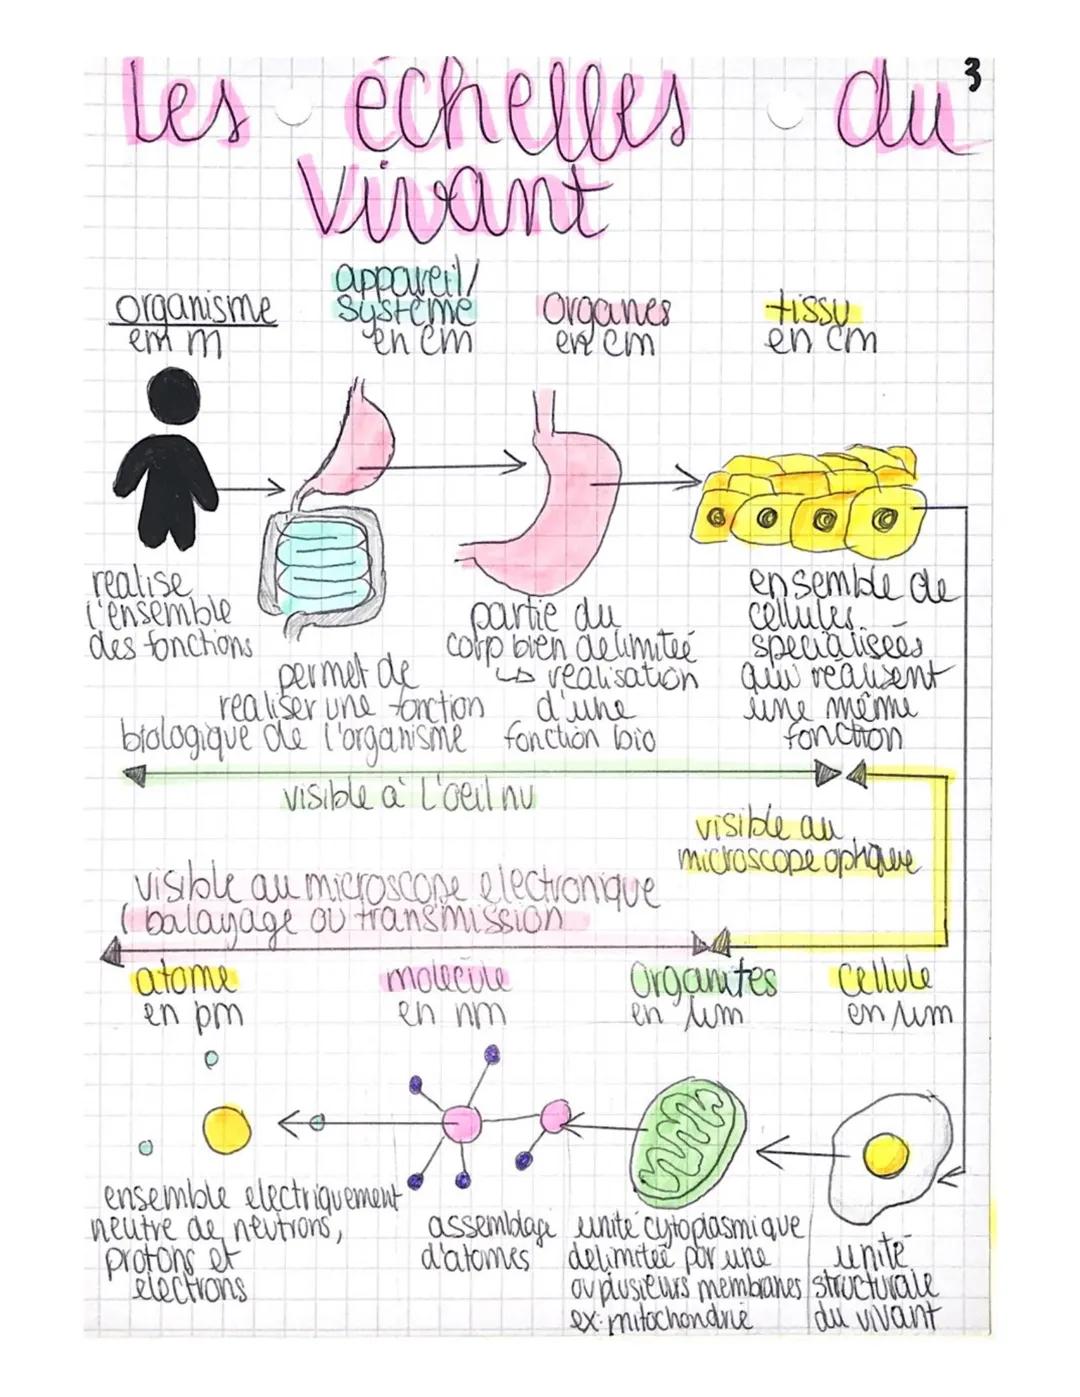 3
Les échelles du
Vivant
organisme
en m
appareil/
système
en cm
Organes
en cm
tissu
en cm
realise
l'ensemble
des fonctions
permet de
realiser une fonction
biologique de l'organisme
partie du
corp bien delimiteé
↳ realisation
d'une
fonction bio
ensemble de
cellules
specialiseés
qui realisent
une même
fonction
visible a l'oeil nu
visible au
microscope optique
visible au microscope electronique
( balayage ou transmission
atome
en pm
molecule
en nm
Organites
en µm
Cellule
en µm
ensemble electriquement
neutre de neutrons,
protons et
electrons
assemblage
d'atomes
unité cytoplasmique
delimiteé par une
ou plusieurs membranes
ex: mitochondrie
unité
structurale
du vivant